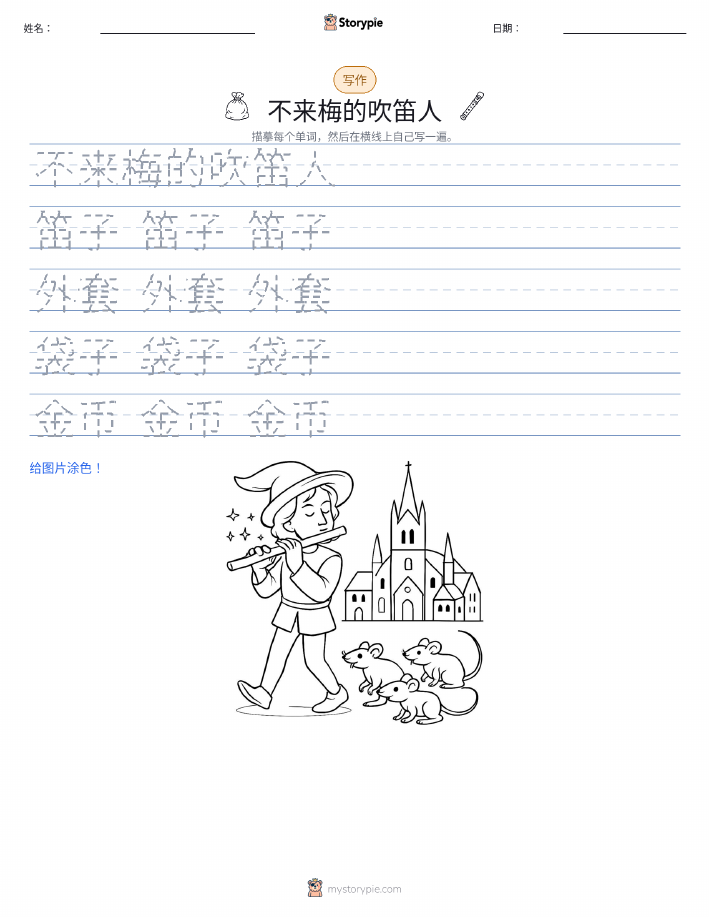 姓名：
Storypie
日期：
写作
不来梅的吹笛人
描摹每个单词，然后在横线上自己写一遍。
不来梅的吹笛人
笛子 笛子 笛子
外套 外套 外套
袋子 袋子 袋子
金币 金币 金币
给图片涂色！
mystorypie.com